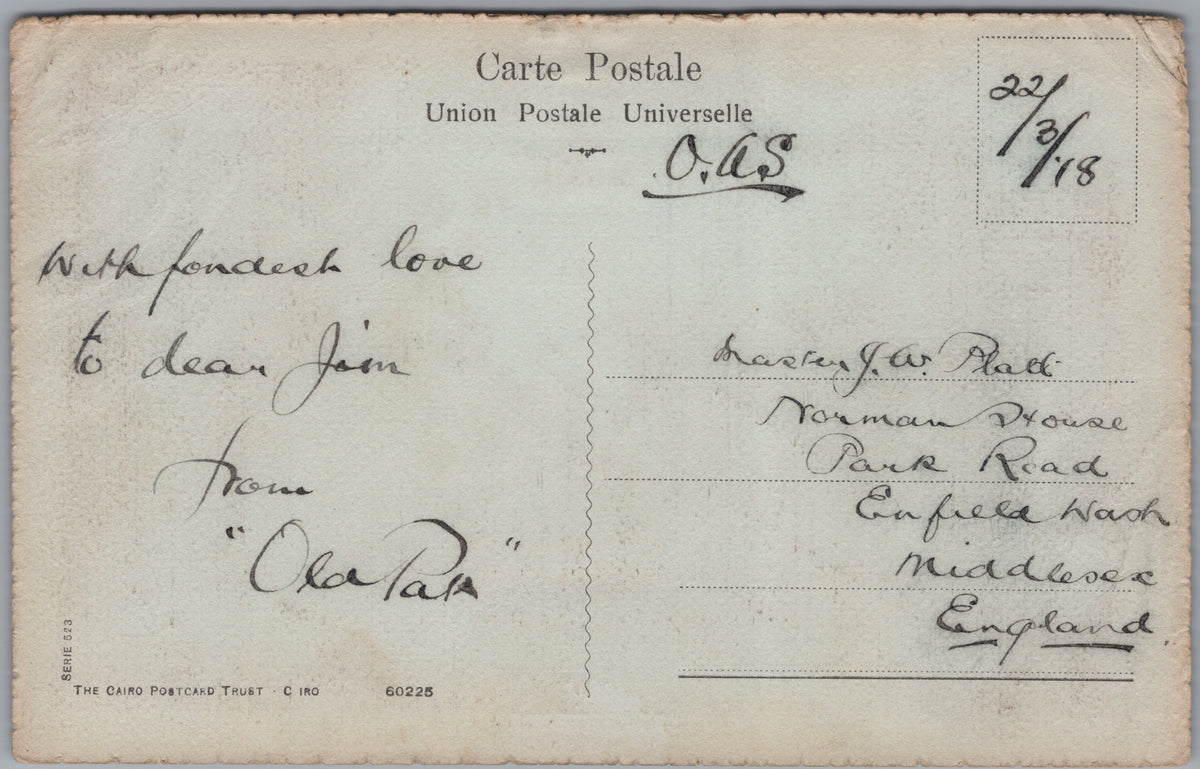 Carte Postale
Union Postale Universelle
O.AS
22/3/'18
With fondest love
to dear Jim
from
"Old Pat"
Master J. W. Platt
Norman House
Park Road
Enfield Wash
Middlesex
England.
SERIE 523
THE CAIRO POSTCARD TRUST · C IRO 60225